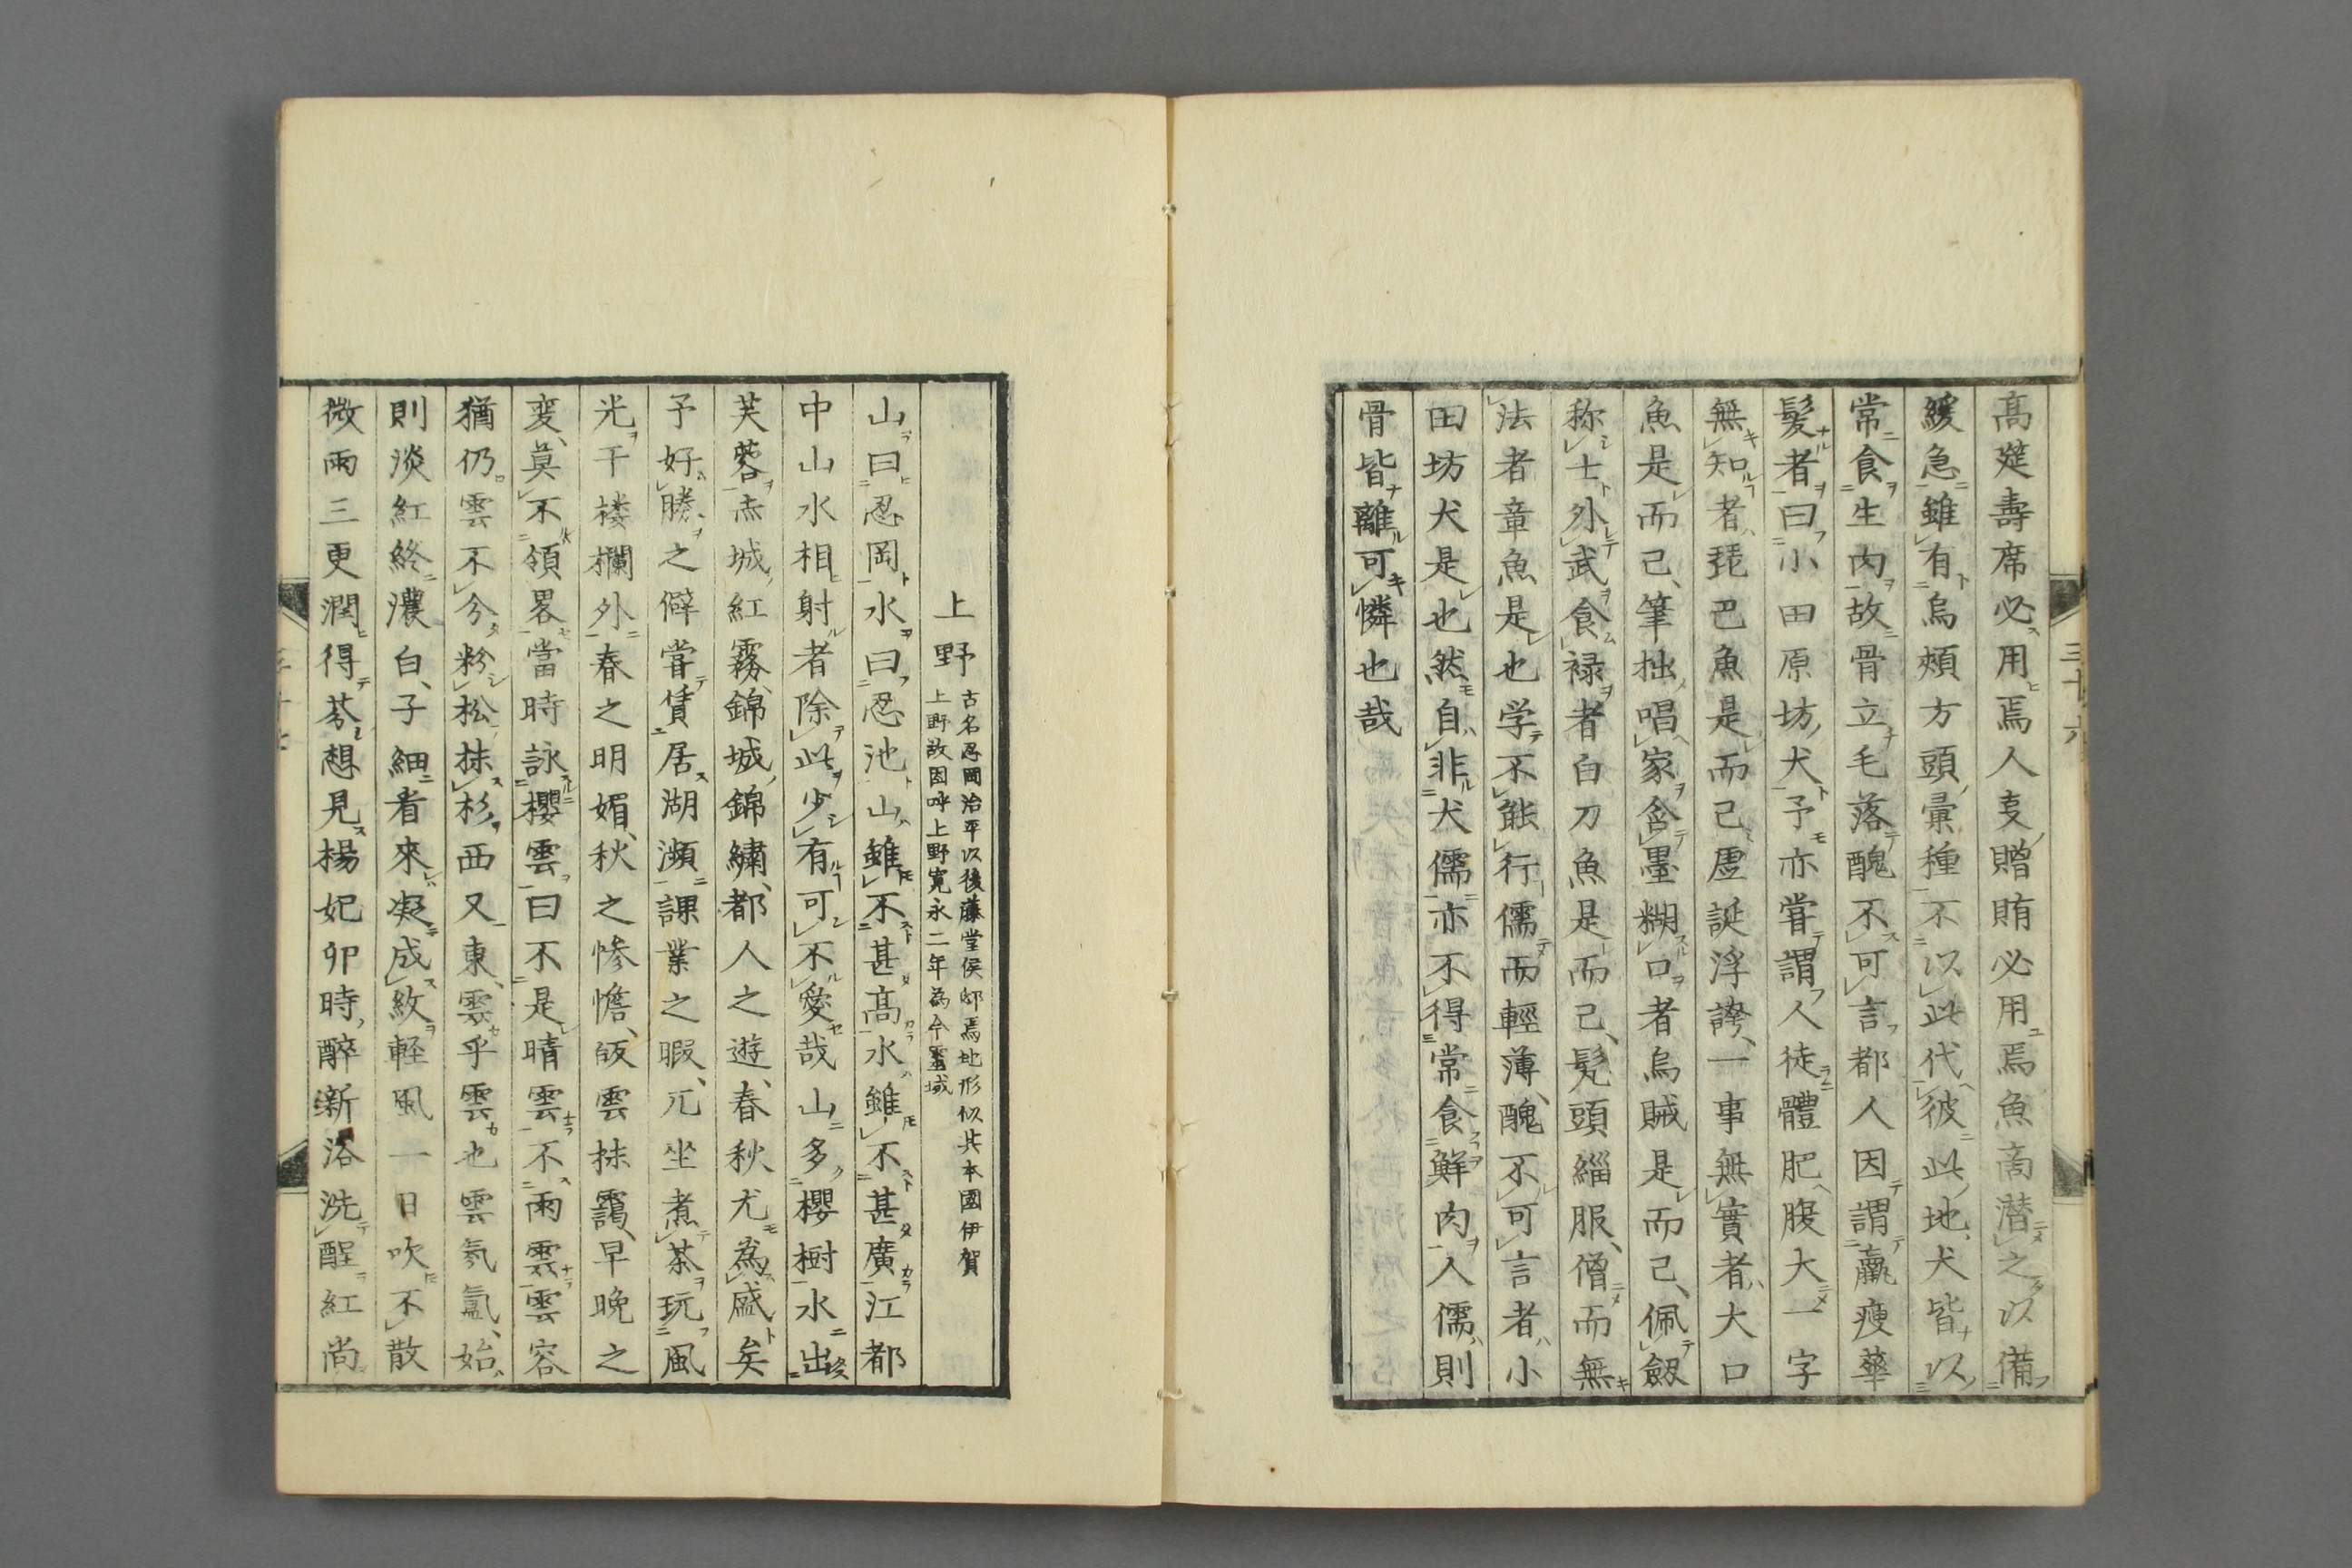 高筵壽席必用焉人叓贈賄必用焉魚啇潛之以備
緩急雖有烏頰方頭彙種不以此代彼此地犬皆以
常食生肉故骨立毛落醜不可言都人因謂羸瘦蓽
髮者曰小田原坊犬予亦甞謂人徒體肥腹大一字
無知者琵巴魚是而己虗誕浮誇一事無實者大口
魚是而己筆拙唱家含墨糊口者烏賊是而己佩劔
称士外武食禄者白刀魚是而己髠頭緇服僧而無
法者章魚是也学不能行儒而輕薄醜不可言者小
田坊犬是也然自非犬儒亦不得常食鮮肉人儒則
骨皆離可憐也哉
三十六
上野
古名忍岡治平以後藤堂侯邸焉地形似其本國伊賀
上野故因呼上野寛永二年為今霊域
山曰忍岡水曰忍池山雖不甚高水雖不甚廣江都
中山水相射者除此少有可不愛哉山多櫻樹水出
芙蓉赤城紅霧錦城錦繡都人之遊春秋尤為盛矣
予好勝之僻甞賃居湖瀕課業之暇兀坐煮茶玩風
光于楼欄外春之明媚秋之惨憺皈雲抹靄早晩之
変莫不領畧當時詠櫻雲曰不是晴雲不雨雲雲容
猶仍雲不分粉松抹杉西又東雲乎雲也雲氛氳始
則淡紅終濃白子細看來凝成紋軽風一日吹不散
微雨三更潤得芬想見楊妃卯時醉新浴洗醒紅尚
三十七